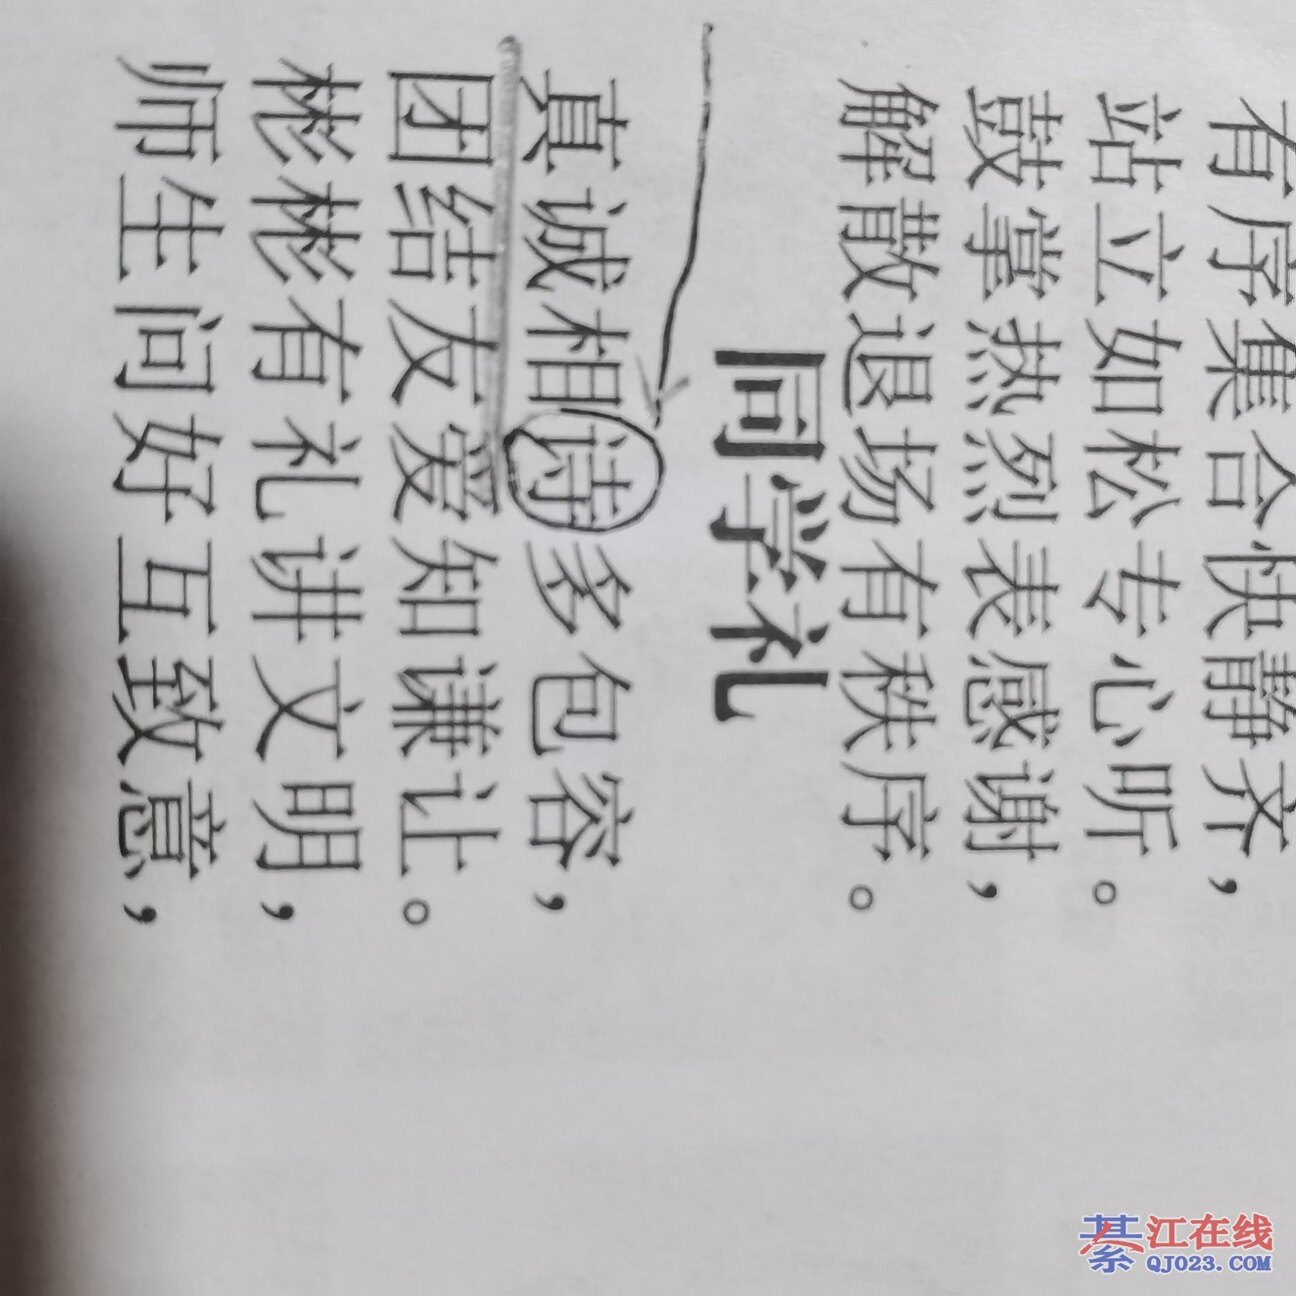 有序集合快静齐，
站立如松专心听。
鼓掌热烈表感谢，
解散退场有秩序。
同学礼
真诚相诗多包容，
团结友爱知谦让。
彬彬有礼讲文明，
师生问好互致意，
綦江在线
QJ023.COM